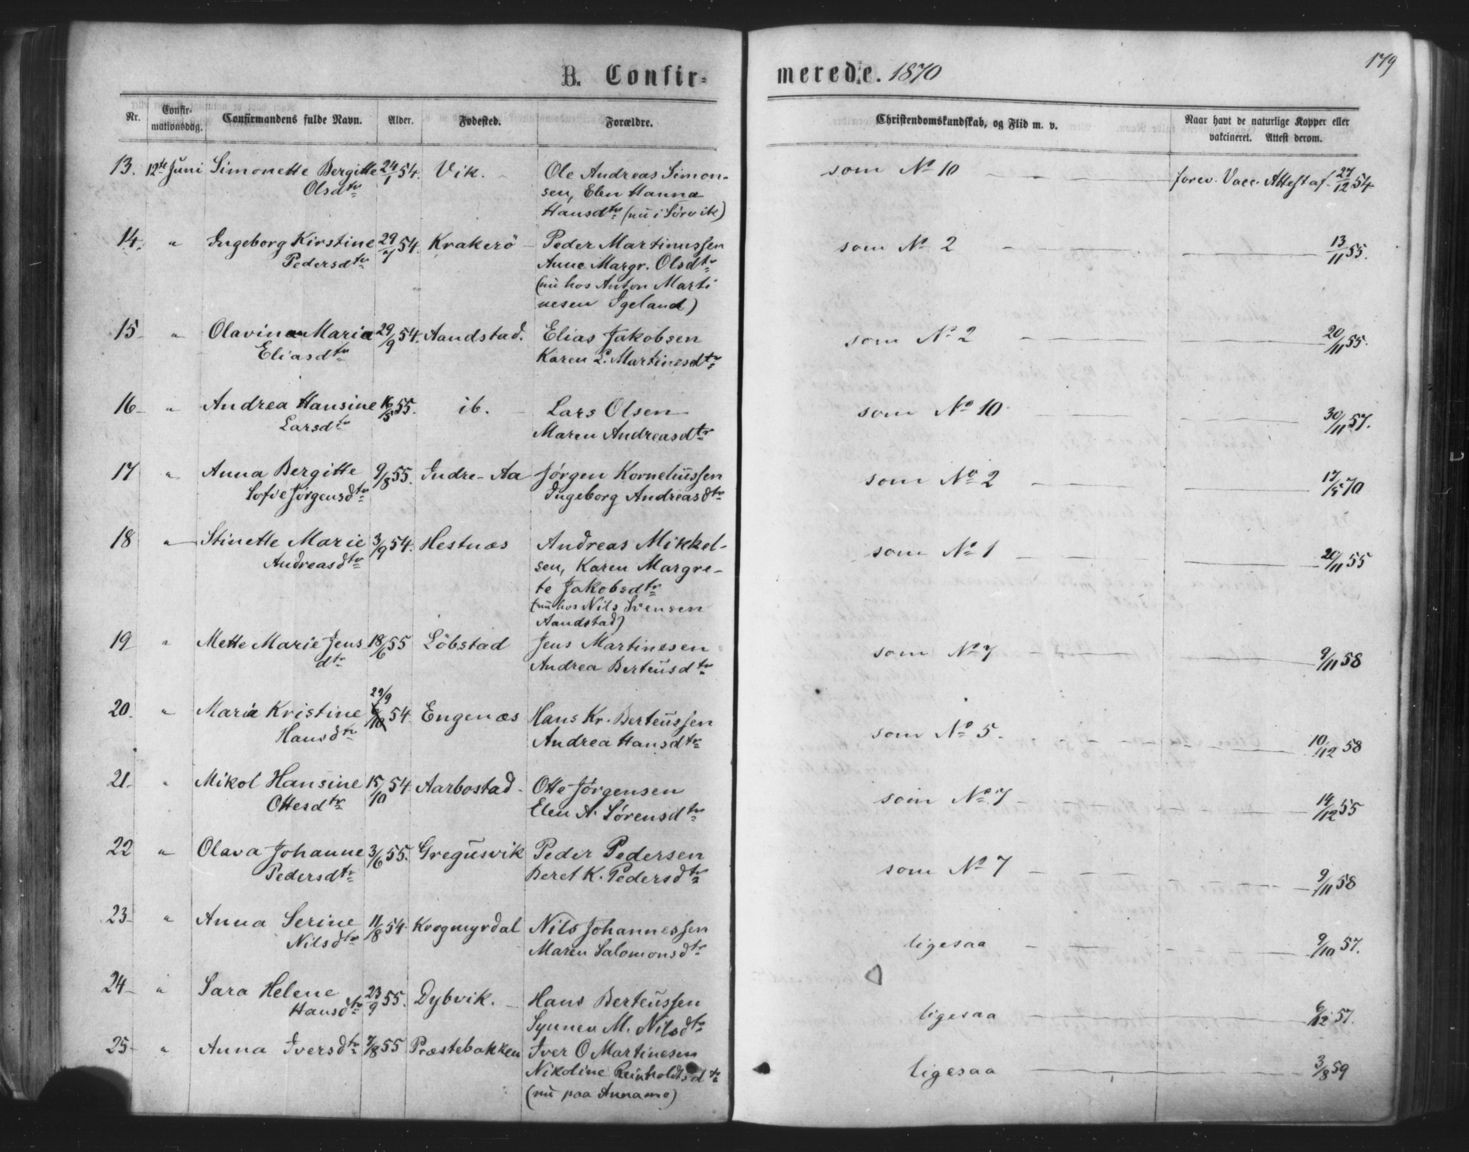 179
B. Confir- merede. 1870
Nr. Confir-mationsdag. Confirmandens fulde Navn. Alder. Fødested. Forældre. Christendomskundskab, og Flid m. v. Naar havt de naturlige Kopper eller vakcineret. Attest derom.
13. 12te Juni Simonette Bergitte 24/1 54. Vik. Ole Andreas Simon- som No 10 forev. Vacc. Attest af 27/12 54
Olsdtr sen, Elen Hanna
Hansdtr (nu i Sørvik)
14. " Ingeborg Kirstine 29/7 54. Krakerö Peder Martinussen som No 2 13/11 55.
Pedersdtr Anne Margr. Olsdtr
(nu hos Anton Marti
nesen Igeland)
15 " Olavina Maria 29/9 54. Aandstad. Elias Jakobsen som No 2 20/11 55.
Eliasdtr Karen L. Martinesdtr
16 " Andrea Hansine 16/5 55. ib. Lars Olsen som No 10 30/11 57.
Larsdtr Maren Andreasdtr
17 " Anna Bergitte 9/8 55. Indre-Aa Jørgen Korneliussen som No 2 17/5 70
Sofie Jørgensdtr Ingeborg Andreasdtr
18 " Stinette Marie 3/9 54. Hestnæs Andreas Mikkel- som No 1 20/11 55
Andreasdtr sen, Karen Margre-
te Jakobsdtr
(nu hos Nils Svensen
Aandstad)
19 " Mette Marie Jens 18/6 55 Löbstad Jens Martinesen som No 7 9/11 58
dtr Andrea Berteusdtr
20. " Maria Kristine 29/9 54. Engenæs Hans Kr. Berteussen som No 5. 10/12 58
Hansdtr Andrea Hansdtr
21. " Mikol Hansine 15/10 54 Aarbostad Otte Jørgensen som No 7 14/12 55
Ottesdtr Elen A. Sörensdtr
22 " Olava Johanne 3/6 55. Gregusvik Peder Pedersen som No 7 9/11 58
Pedersdtr Beret K. Pedersdtr
23 " Anna Serine 11/8 54 Krogmyrdal Nils Johannessen ligesaa 9/10 57.
Nilsdtr Maren Salomonsdtr
24 " Sara Helene 23/9 55. Dybvik. Hans Berteussen ligesaa 6/12 57.
Hansdtr Synnev M. Nilsdtr
25 " Anna Iversdtr 7/8 55 Præstebakken Iver O Martinesen ligesaa 3/8 59
Nikoline Reinholdtsdtr
(nu paa Annamo)